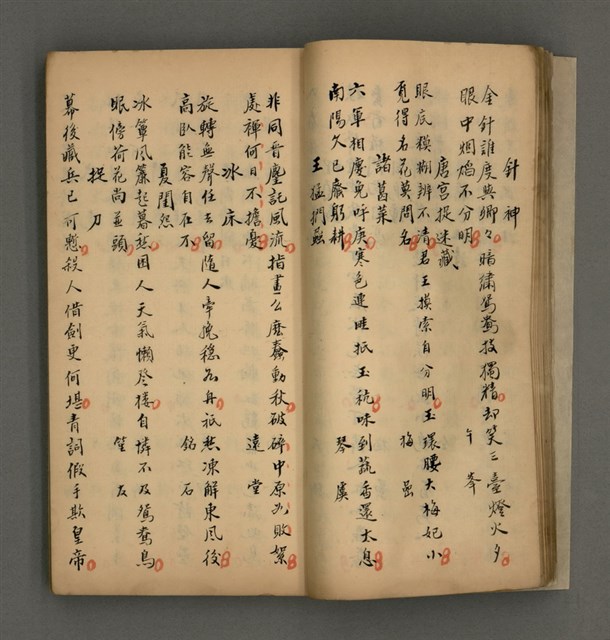 針神
金針誰度與卿々暗繡鴛鴦技獨精却笑三臺燈火夕
眼中烟焰不分明
午峯
唐宮捉迷藏
眼底模糊辨不清君王摸索自分明玉環腰大梅妃小
覓得名花莫問名
梅
諸葛菜
六軍相慶免呼庚寒色連畦抵玉秔味到蔬香還太息
南陽久已廢躬耕
琴虞
王猛捫虱
非同晉塵託風流指畫么麽蠢動秋破碎中原如敗絮
處褌何日不擔憂
遠堂
冰床
旋轉無聲任去留隨人牽挽穩如舟祇愁凍解東風後
高臥能容自在不
鉛石
夏閨怨
冰簟風簾起暮愁困人天氣懶登樓自憐不及鴛鴦鳥
眠傍荷花尚並頭
笙友
捉刀
幕後藏兵已可愁殺人借劍更何堪青詞假手欺皇帝